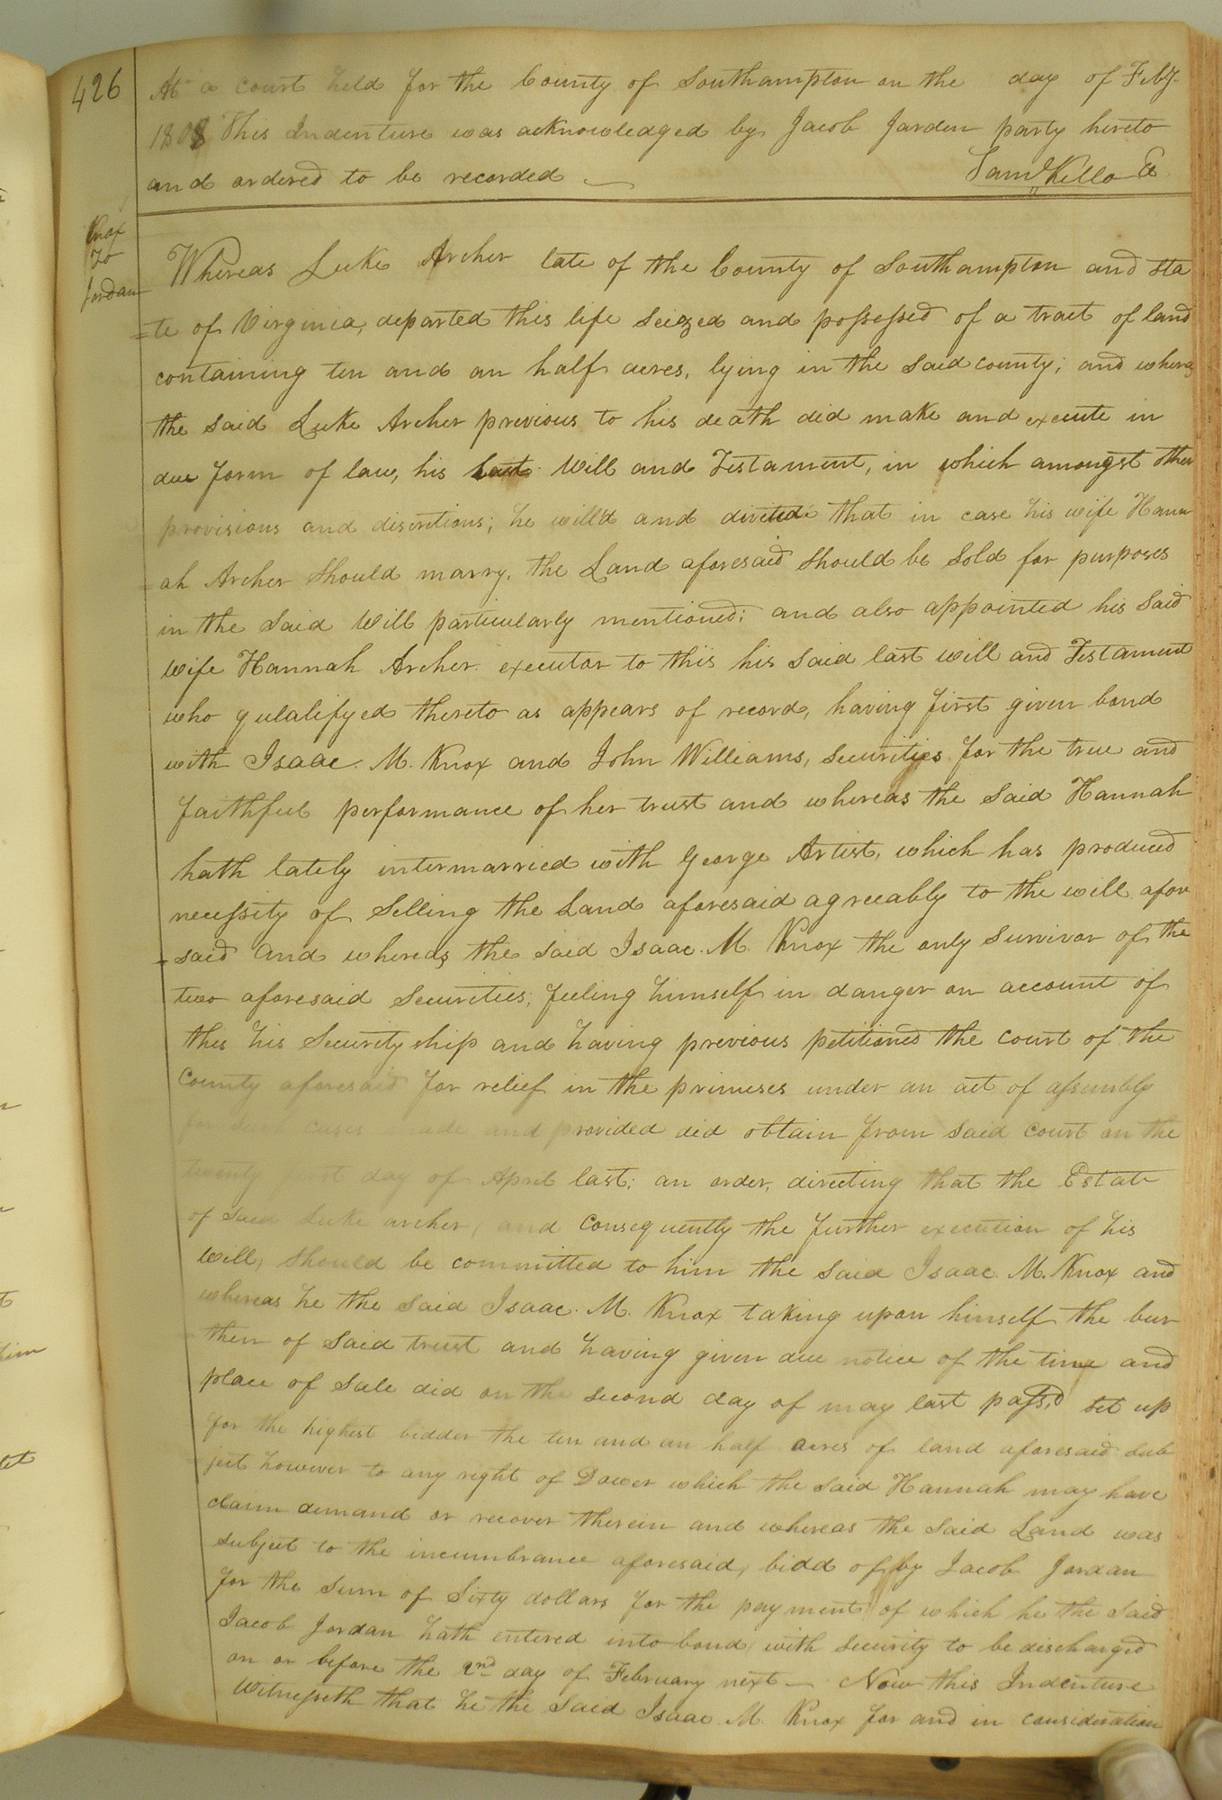 426
At a court held for the County of Southampton on the day of Feby
1808 This Indenture was acknowledged by Jacob Jarden party hereto
and ordered to be recorded
Saml Kello Cl
Knox
to
Jordan
Whereas Luke Archer late of the County of Southampton and sta
=te of Virginia, departed this life Seized and possessed of a tract of land
containing ten and an half acres, lying in the said county; and whereas
the said Luke Archer previous to his death did make and execute in
due form of law, his last Will and Testament, in which amongst other
provisions and discretions; he will'd and divitid that in case his wife Hann
=ah Archer should marry, the Land aforesaid should be Sold for purposes
in the said Will particularly mentioned; and also appointed his said
wife Hannah Archer executor to this his said last will and Testament
who qulalifyed thereto as appears of record, having first given bond
with Isaac M. Knox and John Williams, securities for the true and
faithful performance of her trust and whereas the said Hannah
hath lately intermarried with George Artist, which has produced
necessity of Selling the Land aforesaid agreeably to the will afore
=said and whereas the said Isaac M. Knox the only survivor of the
two aforesaid Securities, feeling himself in danger on account of
this his Security ship and having previous petitioned the court of the
County aforesaid for relief in the primeses under an act of assembly
for such cases made and provided did obtain from said court on the
twenty first day of April last; an order, directing that the Estate
of said Luke archer, and consequently the further execution of his
Will, should be committed to him the said Isaac M. Knox and
whereas he the said Isaac M. Knox taking upon himself the bur
then of said trust and having given due notice of the time and
place of sale did on the second day of may last pass'd set up
for the highest bidder the ten and an half acres of land aforesaid sub
ject however to any right of Dower which the said Hannah may have
claim demand or recover therein and whereas the said Land was
subject to the incumbrance aforesaid, bidd of by Jacob Jordan
for the sum of Sixty dollars for the payment of which he the said
Jacob Jordan hath entered into bond with security to be discharged
on or before the 2nd day of February next Now this Indenture
Witnesseth that he the said Isaac M. Knox for and in consideration